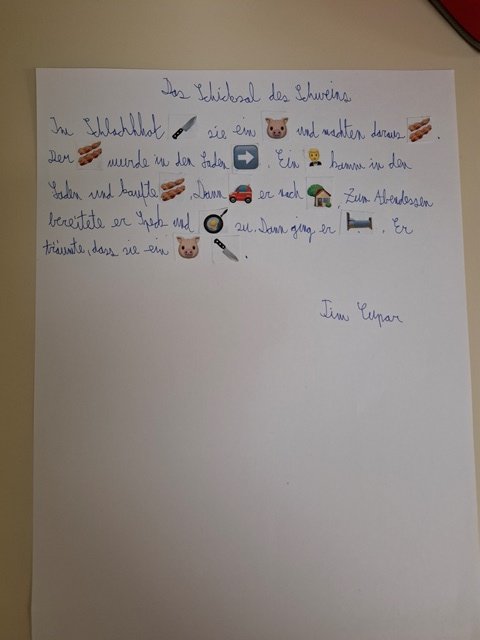 Das Schicksal des Schweins
Im Schlachthof 🔪 sie ein 🐷 und machten daraus 🥓.
Der 🥓 wurde in den Laden ➡️. Ein 👨‍💼 kamm in den
Laden und kaufte 🥓. Dann 🚗 er nach 🏡. Zum Abendessen
bereitete er Speck und 🍳 zu. Dann ging er 🛏️. Er
träumte, dass sie ein 🐷 🔪.
Jim